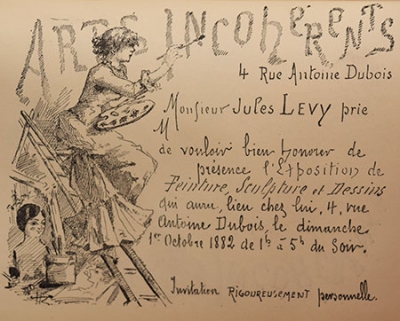 ARTS INCOHERENTS
4 Rue Antoine Dubois
Monsieur Jules LEVY prie
M
de vouloir bien honorer de
présence l'Exposition de
Peinture, Sculpture et Dessins
qui aura lieu chez lui, 4, rue
Antoine Dubois, le dimanche
1er Octobre 1882 de 1h à 5h du Soir.
Invitation RIGOUREUSEMENT personnelle.